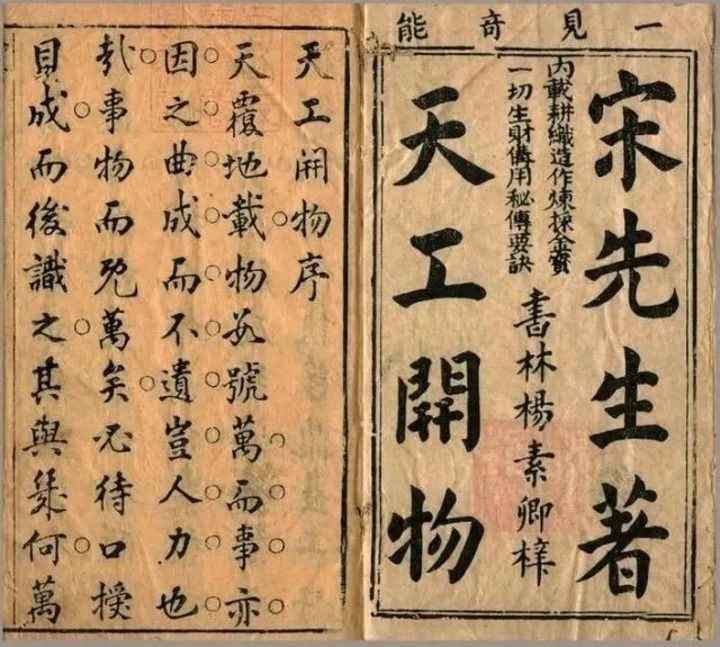 一見奇能
宋先生著
內載耕織造作煉採金寶
一切生財備用秘傳要訣
書林楊素卿梓
天工開物
天工開物序
天覆地載物數號萬而事亦
因之曲成而不遺豈人力也
哉事物而既萬矣必待口授
目成而後識之其與幾何萬